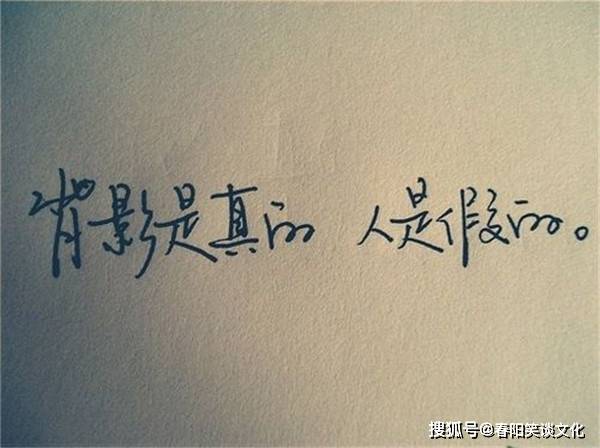 背影是真的 人是假的。
搜狐号@春阳笑谈文化